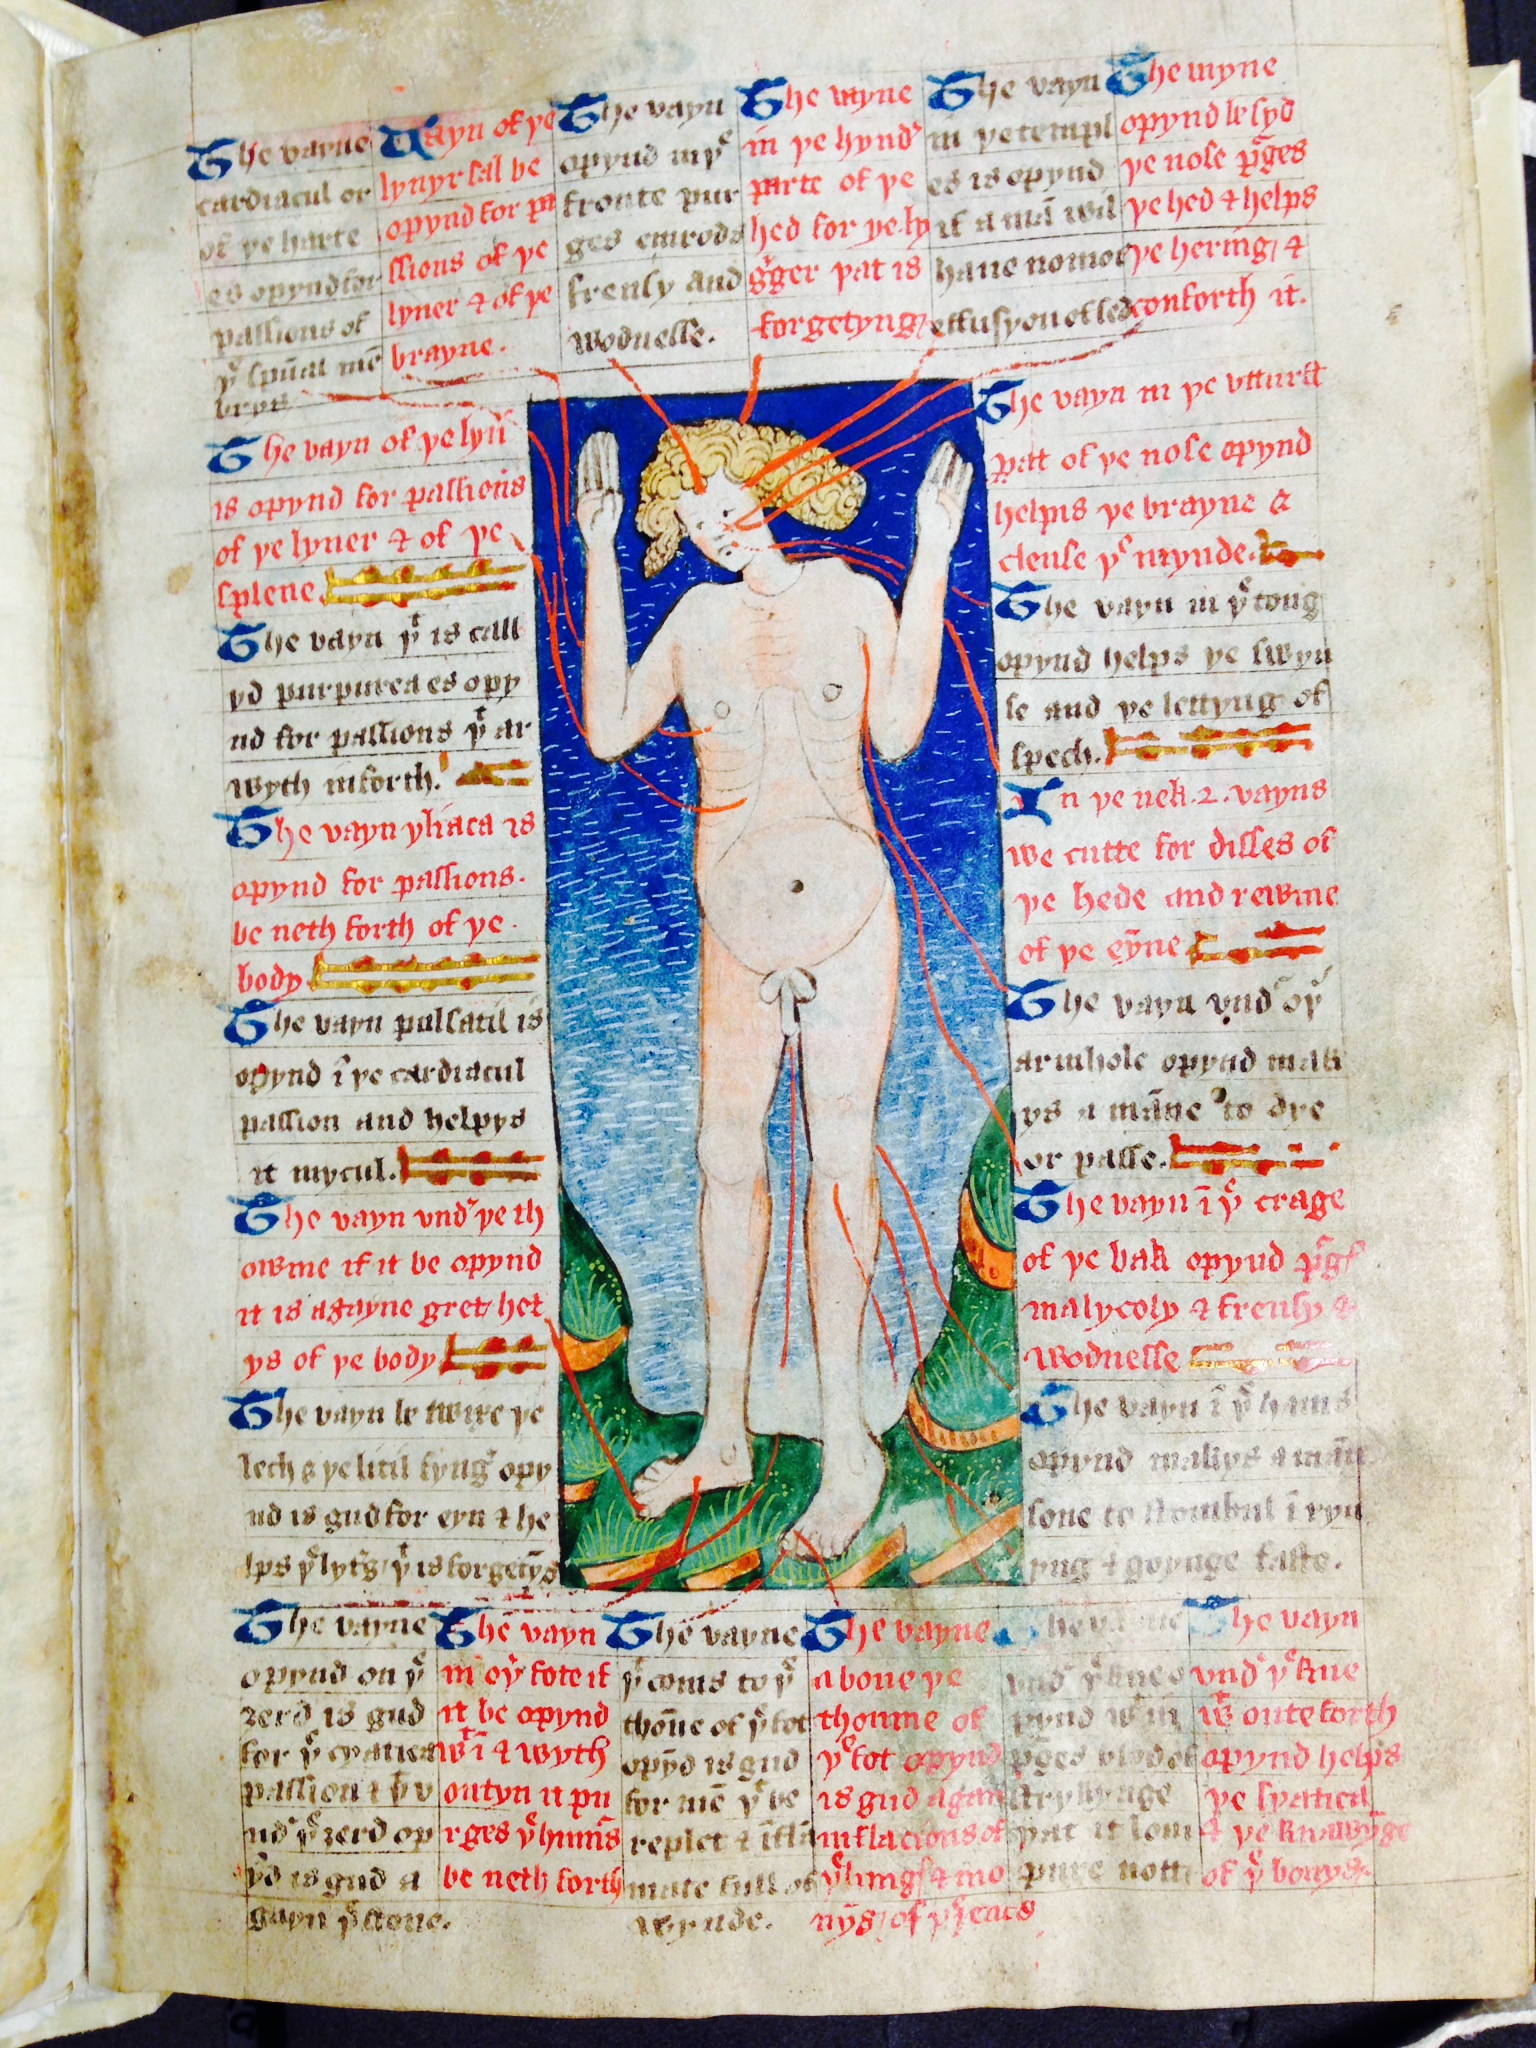 The vayne
cardiacul or
of ye harte
es opynd for
passions of
yͤ spũal mē
brys
Uayn of ye
lyuyr sal be
opynd for pa
ssions of ye
lyuer & of ye
brayne.
The vayn
opynd in yͤ
fronte pur
ges emrods
frensy and
wodnesse.
The vayne
in ye hynd
parte of ye
hed for ye ly
gger yat is
forgetyng
The vayn
in ye templ
es is opynd
if a mā wil
haue nomor
effusyon of
The vayne
opynd be syd
ye nose pges
ye hed & helps
ye hering & 
conforth it.
The vayn of ye lyū
is opynd for passions
of ye lyuer & of ye
splene.
The vayn yͭ is call
yd purpurea es opy
nd for passions yͭ ar
wyth inforth.
The vayn yliaca is
opynd for passions.
be neth forth of ye.
body.
The vayn pulsatil is
opynd ī ye cardiacul
passion and helpys
it mycul.
The vayn vnd ye th
owme if it be opynd
it is agayne gret het
ys of ye body
The vayn be twixe ye
lech & ye litil fyng opy
nd is gud for eyn & he
lps yͤ lytg yͭ is forgetȳg
The vayn in ye vttirst
part of ye nose opynd
helpis ye brayne &
clense yͤ mynde.
The vayn in yͤ tong
opynd helps ye swyn
se and ye lettyng of
spech.
In ye nek .2. vayns
we cutte for disses of
ye hede and rewme
of ye eȳne
The vayn vnd oyͬ
armhole opynd mak
ys a māne to dye
or passe.
The vayn ī yͤ crage
of ye bak opynd pgs
malycoly & frensy &
wodnesse
The vayn ī yͤ hams
opynd makys a mān
sone to stombul ī ryn
yng & goynge faste.
The vayne
opynd on yͤ
zerd is gud
for yͤ
passion & 
nd yͤ zerd op
ȳd is gud a
gayn yͤ stone.
The vayn
in oyͬ fote if
it be opynd
wͭ ī & wyth
outyn it pu
rges yͤ humīs
be neth forth
The vayne
yͭ coms to yͤ
thōne of yͤ fot
opȳd is gud
for mē yͭ be
replet & īfla
mate full of
wynde.
The vayne
a boue ye
thoume of
yͤ fot opynd
is gud agan
inflacions of
yͤ lungs & mo
The
vnd yͤ knee o
pynd wͭ in
pges
pat it som
pure nott
The vayn
vnd yͤ kne
wͭ oute forth
opynd helpis
ye syatica
& ye knawȳge
of yͤ bonys.